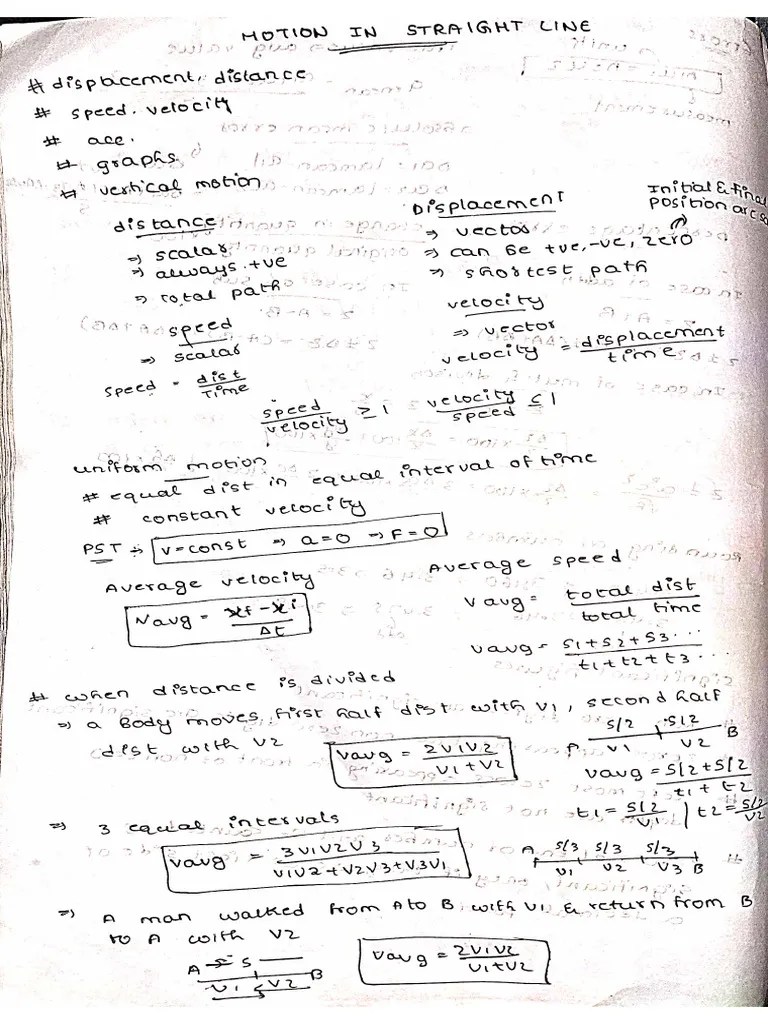 MOTION IN STRAIGHT LINE
# displacement, distance
# speed. velocity
# acc.
# graphs.
# vertical motion
distance
⇒ scalar
⇒ always +ve
⇒ total path
Displacement
⇒ vector
⇒ can be +ve, -ve, zero
⇒ shortest path
Initial & final
position are
speed
⇒ scalar
speed = dist/Time
velocity
⇒ vector
velocity = displacement/time
speed/velocity ≥ 1 velocity/speed ≤ 1
uniform motion
# equal dist in equal interval of time
# constant velocity
PST → v=const ⇒ a=0 ⇒ F=0
Average velocity
Vavg = xf - xi/Δt
Average speed
Vavg = total dist/total time
Vavg = S1+S2+S3.../t1+t2+t3...
# when distance is divided
⇒ a Body moves first half dist with V1, second half
dist with V2
Vavg = 2V1V2/V1+V2
S/2 S/2
V1 V2 B
Vavg = S/2+S/2/t1+t2
t1 = S/2/V1 | t2 = S/2/V2
⇒ 3 equal intervals
Vavg = 3V1V2V3/V1V2+V2V3+V3V1
A S/3 S/3 S/3
V1 V2 V3 B
⇒ A man walked from A to B with V1 & return from B
to A with V2
A S B
V1 V2
Vavg = 2V1V2/V1+V2